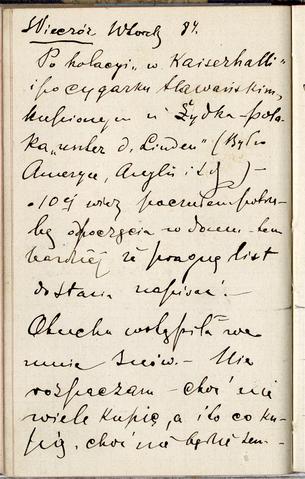 Wieczór Wtorek 84.
Po kolacyi „w Kaiserhalli”
i po cygarku Hawańskim,
kupionem u Żydka-pola-
ka „unter d. Linden” (Był w
Ameryce, Anglii i t.d.)—
o 10ej wiecz poczułem potrze-
bę spoczęcia w domu - tem
bardziej że pragnę list
do Stasia napisać.—
Otucha wstąpiła we
mnie znów.— Nie
rozpaczam - choć nie
wiele kupię, a i to co ku-
pię, choć nie będzie